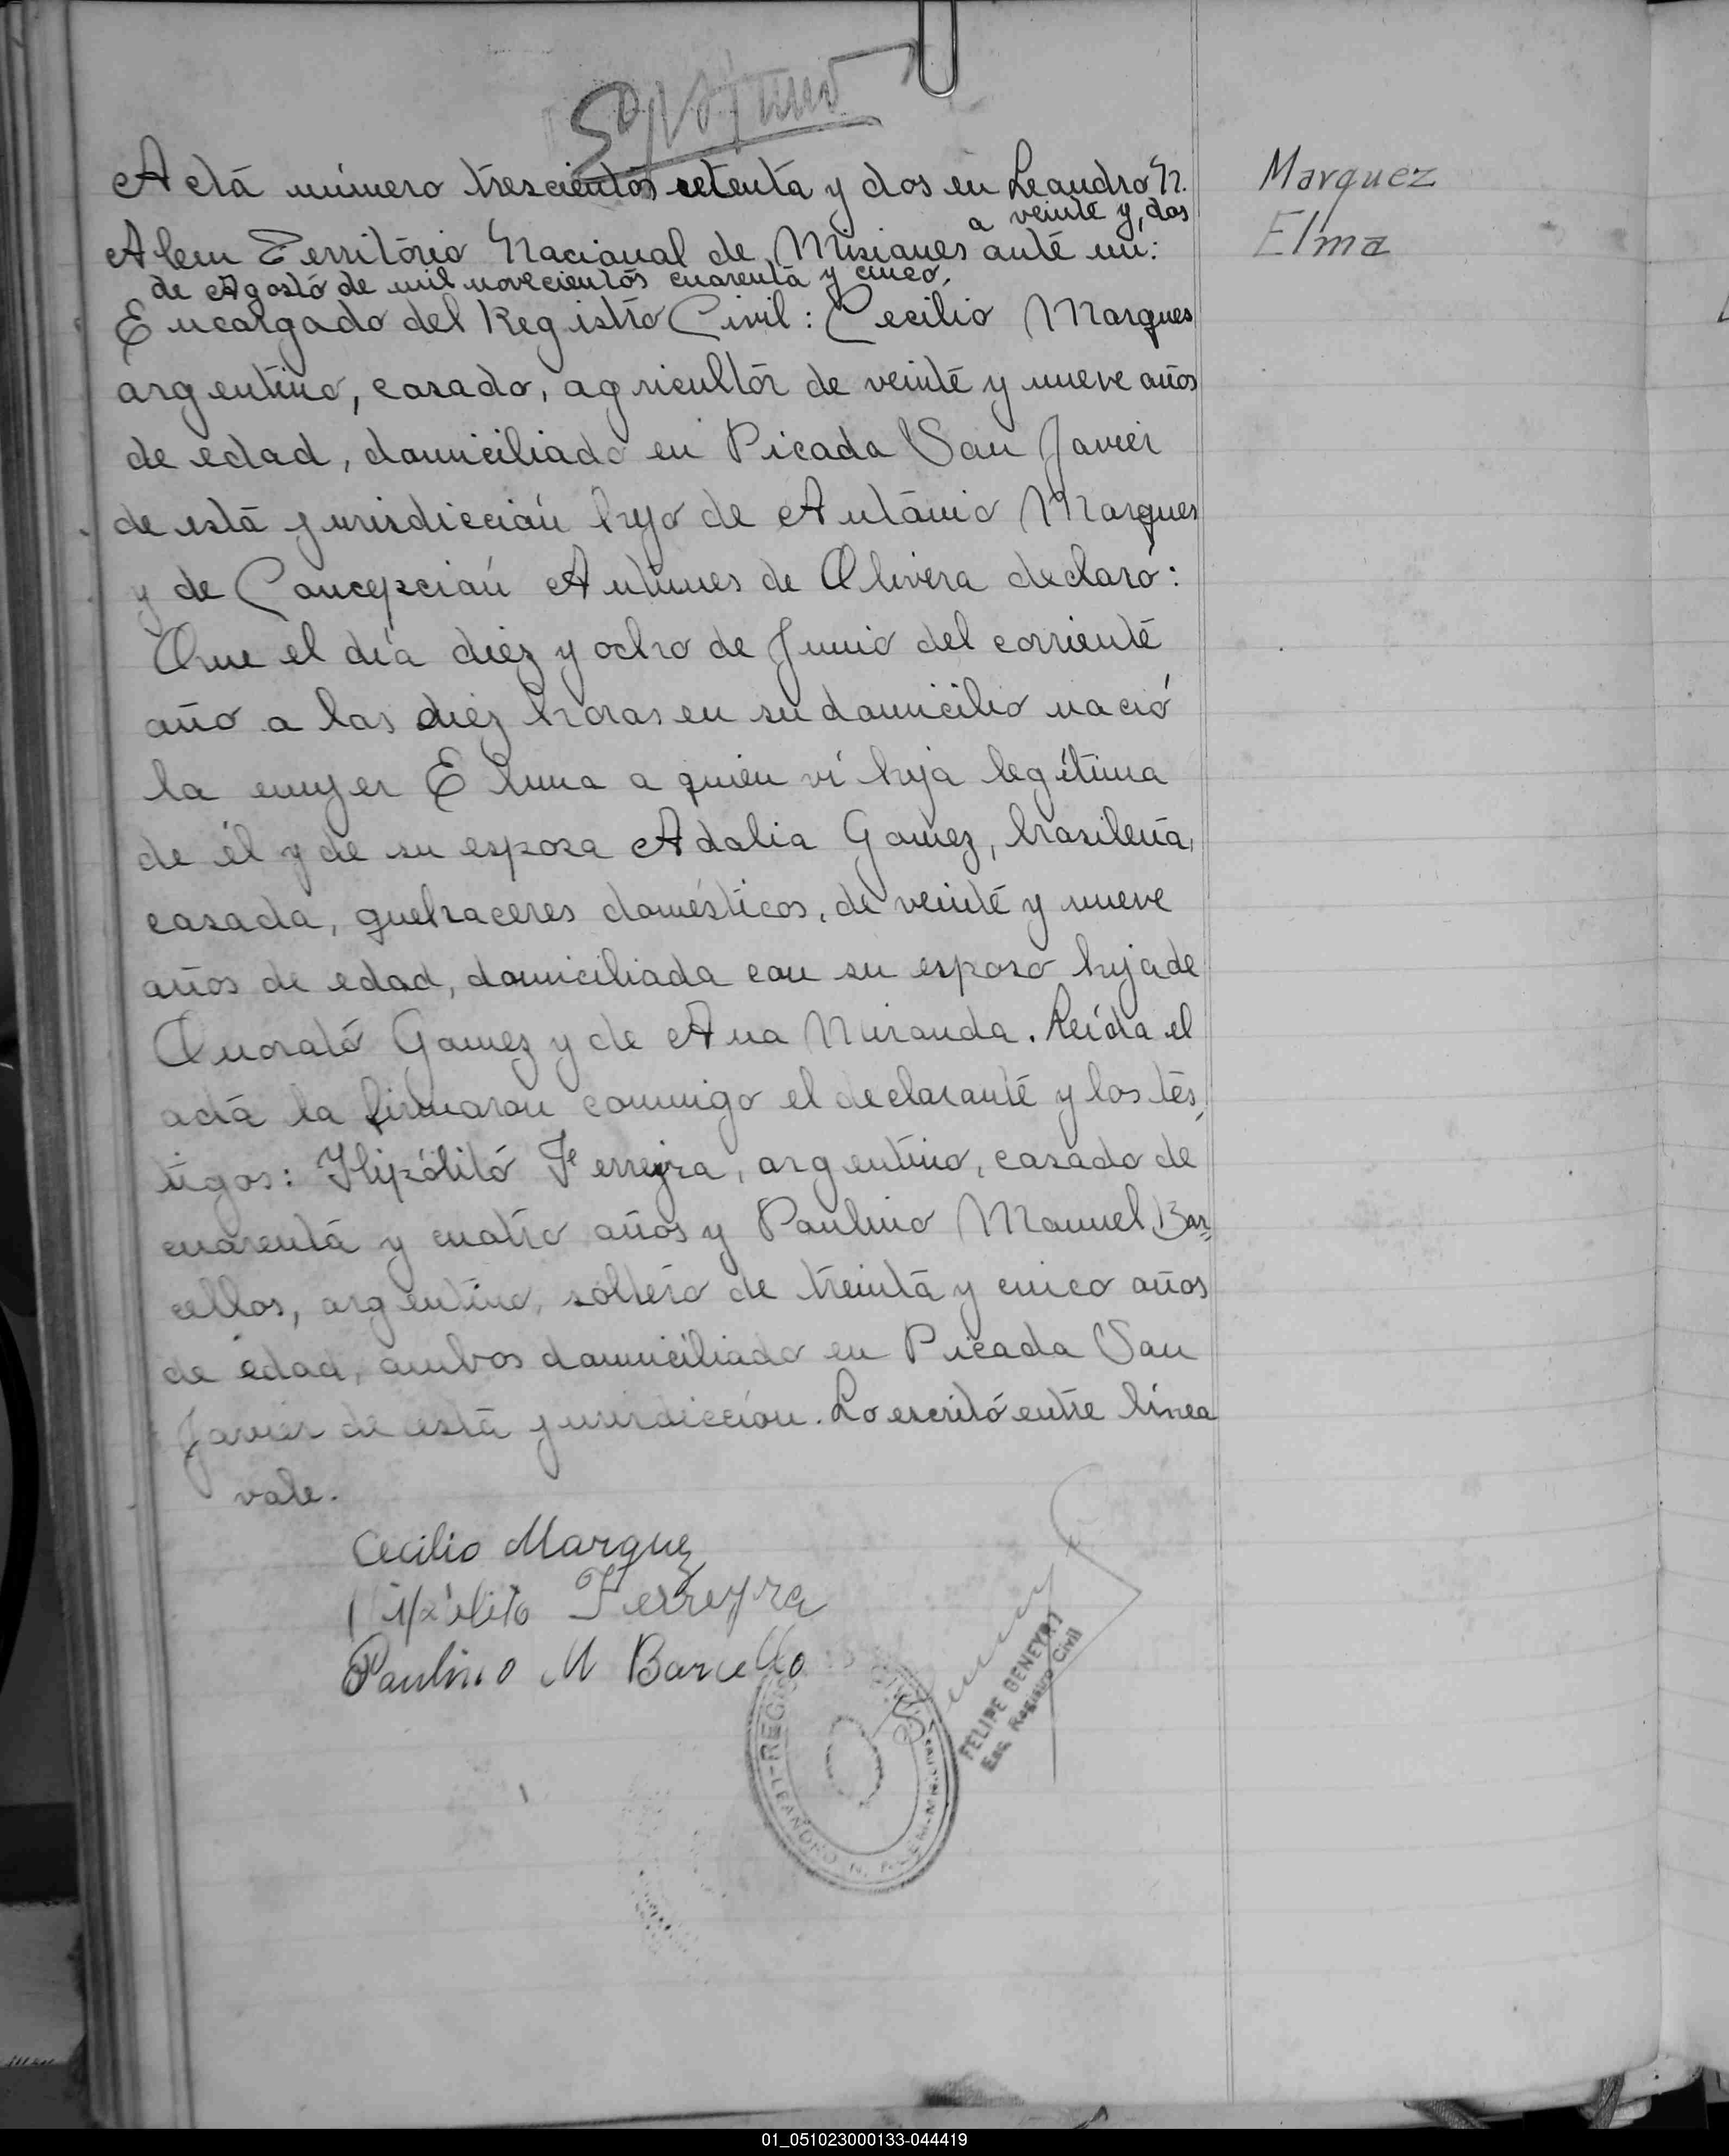 Séptimo
Acta número trescientos setenta y dos en Leandro N.
a veinte y dos
Alem Territorio Nacional de Misiones ante mi:
de Agosto de mil novecientos cuarenta y cinco.
Encargado del Registro Civil: Cecilio Marques
argentino, casado, agricultor de veinte y nueve años
de edad, domiciliado en Picada San Javier
de esta jurisdicción hijo de Antonio Marques
y de Concepción Antunes de Olivera declaró:
Que el día diez y ocho de Junio del corriente
año a las diez horas en su domicilio nació
la mujer Elma a quien ví hija legítima
de él y de su esposa Adalia Gomez, brasileña,
casada, quehaceres domésticos, de veinte y nueve
años de edad, domiciliada con su esposo hija de
Onorato Gomez y de Ana Miranda. Leída el
acta la firmaron conmigo el declarante y los tes,
tigos: Hipólito Ferreyra, argentino, casado de
cuarenta y cuatro años y Paulino Manuel Bar=
cellos, argentino, soltero de treinta y cinco años
de edad, ambos domiciliado en Picada San
Javier de esta jurisdicción. Lo escrito entre línea
vale.
Marquez
Elma
Cecilio Marquez
Hipólito Ferreyra
Paulino M Barcello
FELIPE BENEYRI
Enc. Registro Civil
LEANDRO N. ALEM
01_051023000133-044419